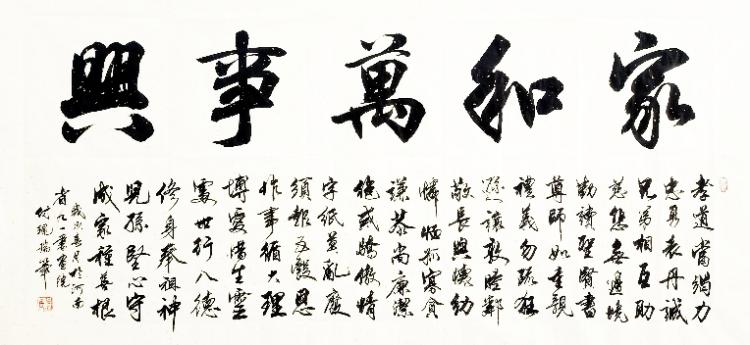 家和萬事興
孝道當竭力
忠勇表丹誠
兄弟相互助
慈悲無邊境
勤讀聖賢書
尊師如重親
禮義勿疏狂
遜讓敦睦鄰
敬長與懷幼
憐恤孤寡貧
謙恭尚廉潔
絕戒驕傲情
字紙莫亂廢
須報五穀恩
作事循天理
博愛惜生靈
處世行八德
修身奉祖神
兒孫堅心守
成家種善根
月於河南
省九一書畫院